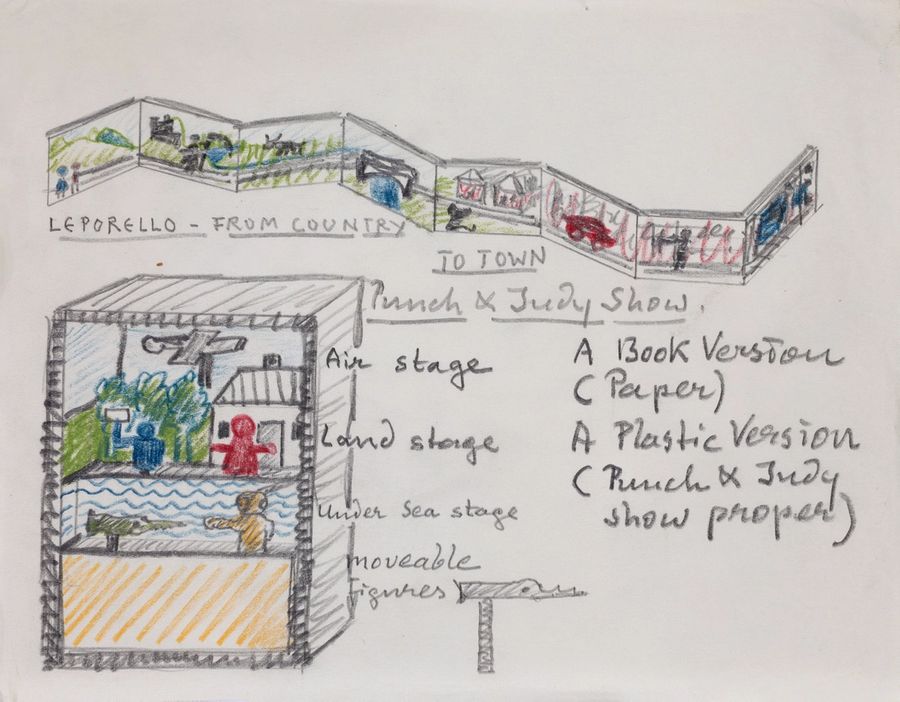 LEPORELLO - FROM COUNTRY
TO TOWN
Punch & Judy Show.
Air stage
Land stage
Under Sea stage
moveable
figures
A Book Version
(Paper)
A Plastic Version
(Punch & Judy
show proper)